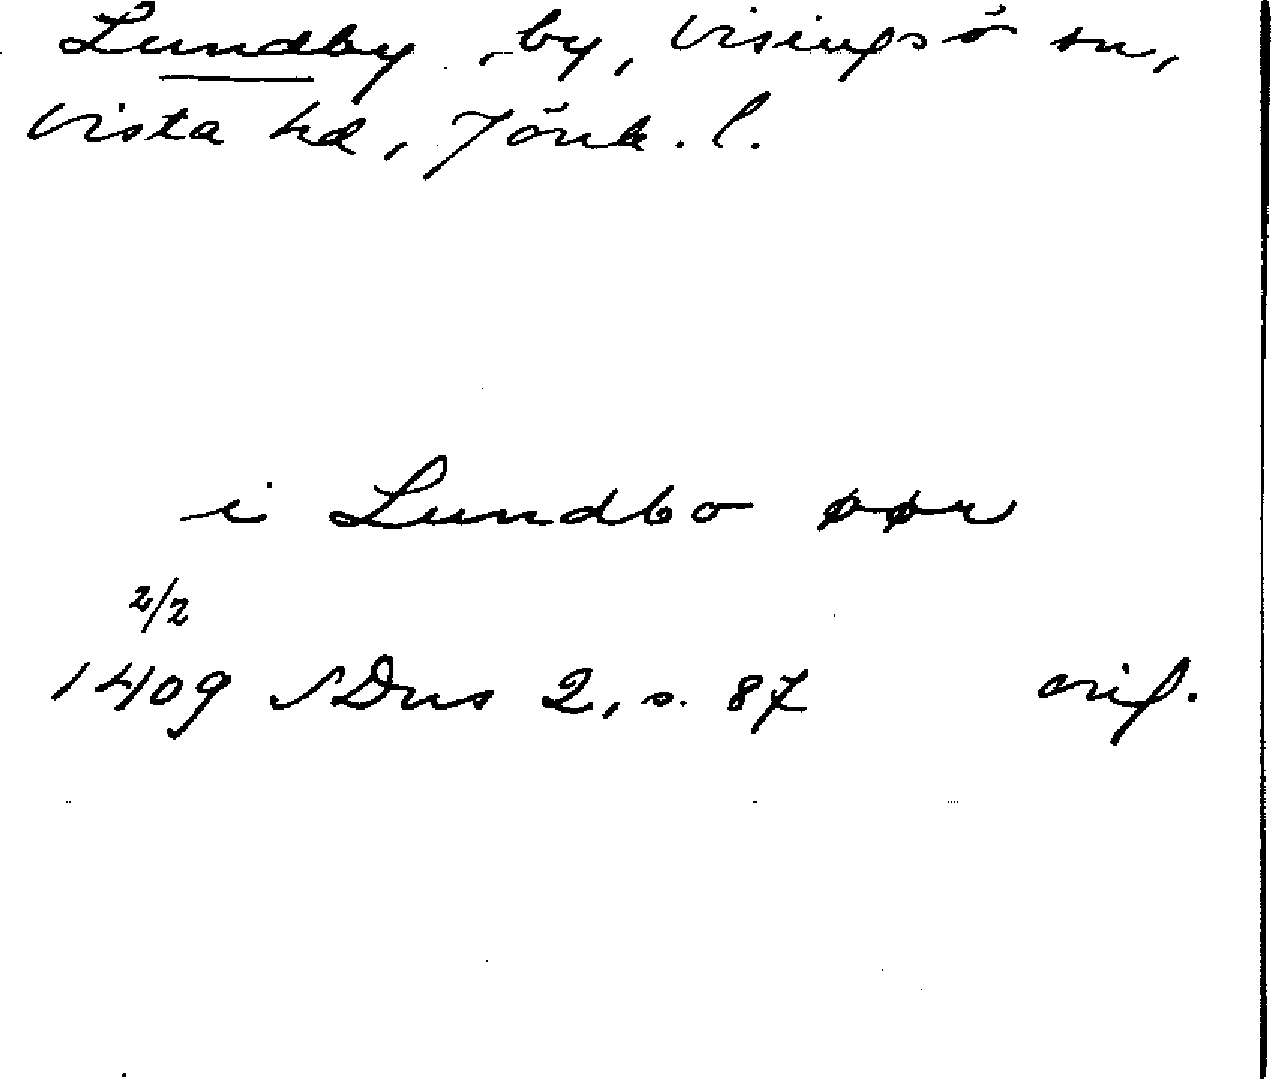 Lundby, by, Visingsö sn,
Vista hd, Jönk. l.
i Lundbo øør
2/2
1409 SDns 2, s. 87 orig.